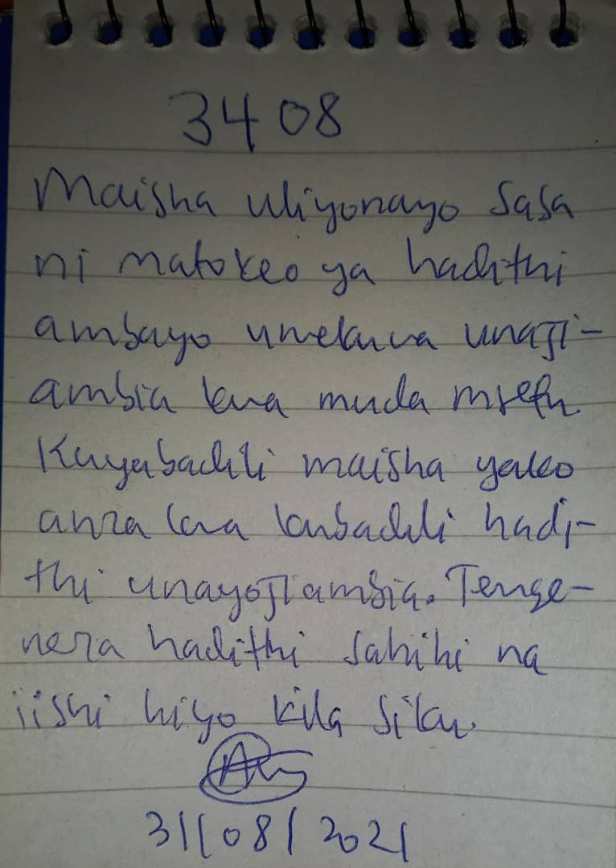 3408
Maisha uliyonayo sasa
ni matokeo ya hadithi
ambayo umekuwa unaji-
ambia kwa muda mrefu.
Kuyabadili maisha yako
anza kwa kubadili hadi-
thi unayojiambia. Tenge-
neza hadithi sahihi na
iishi hiyo kila siku.
31/08/2021